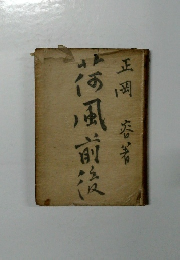 正岡容著
荷風前後